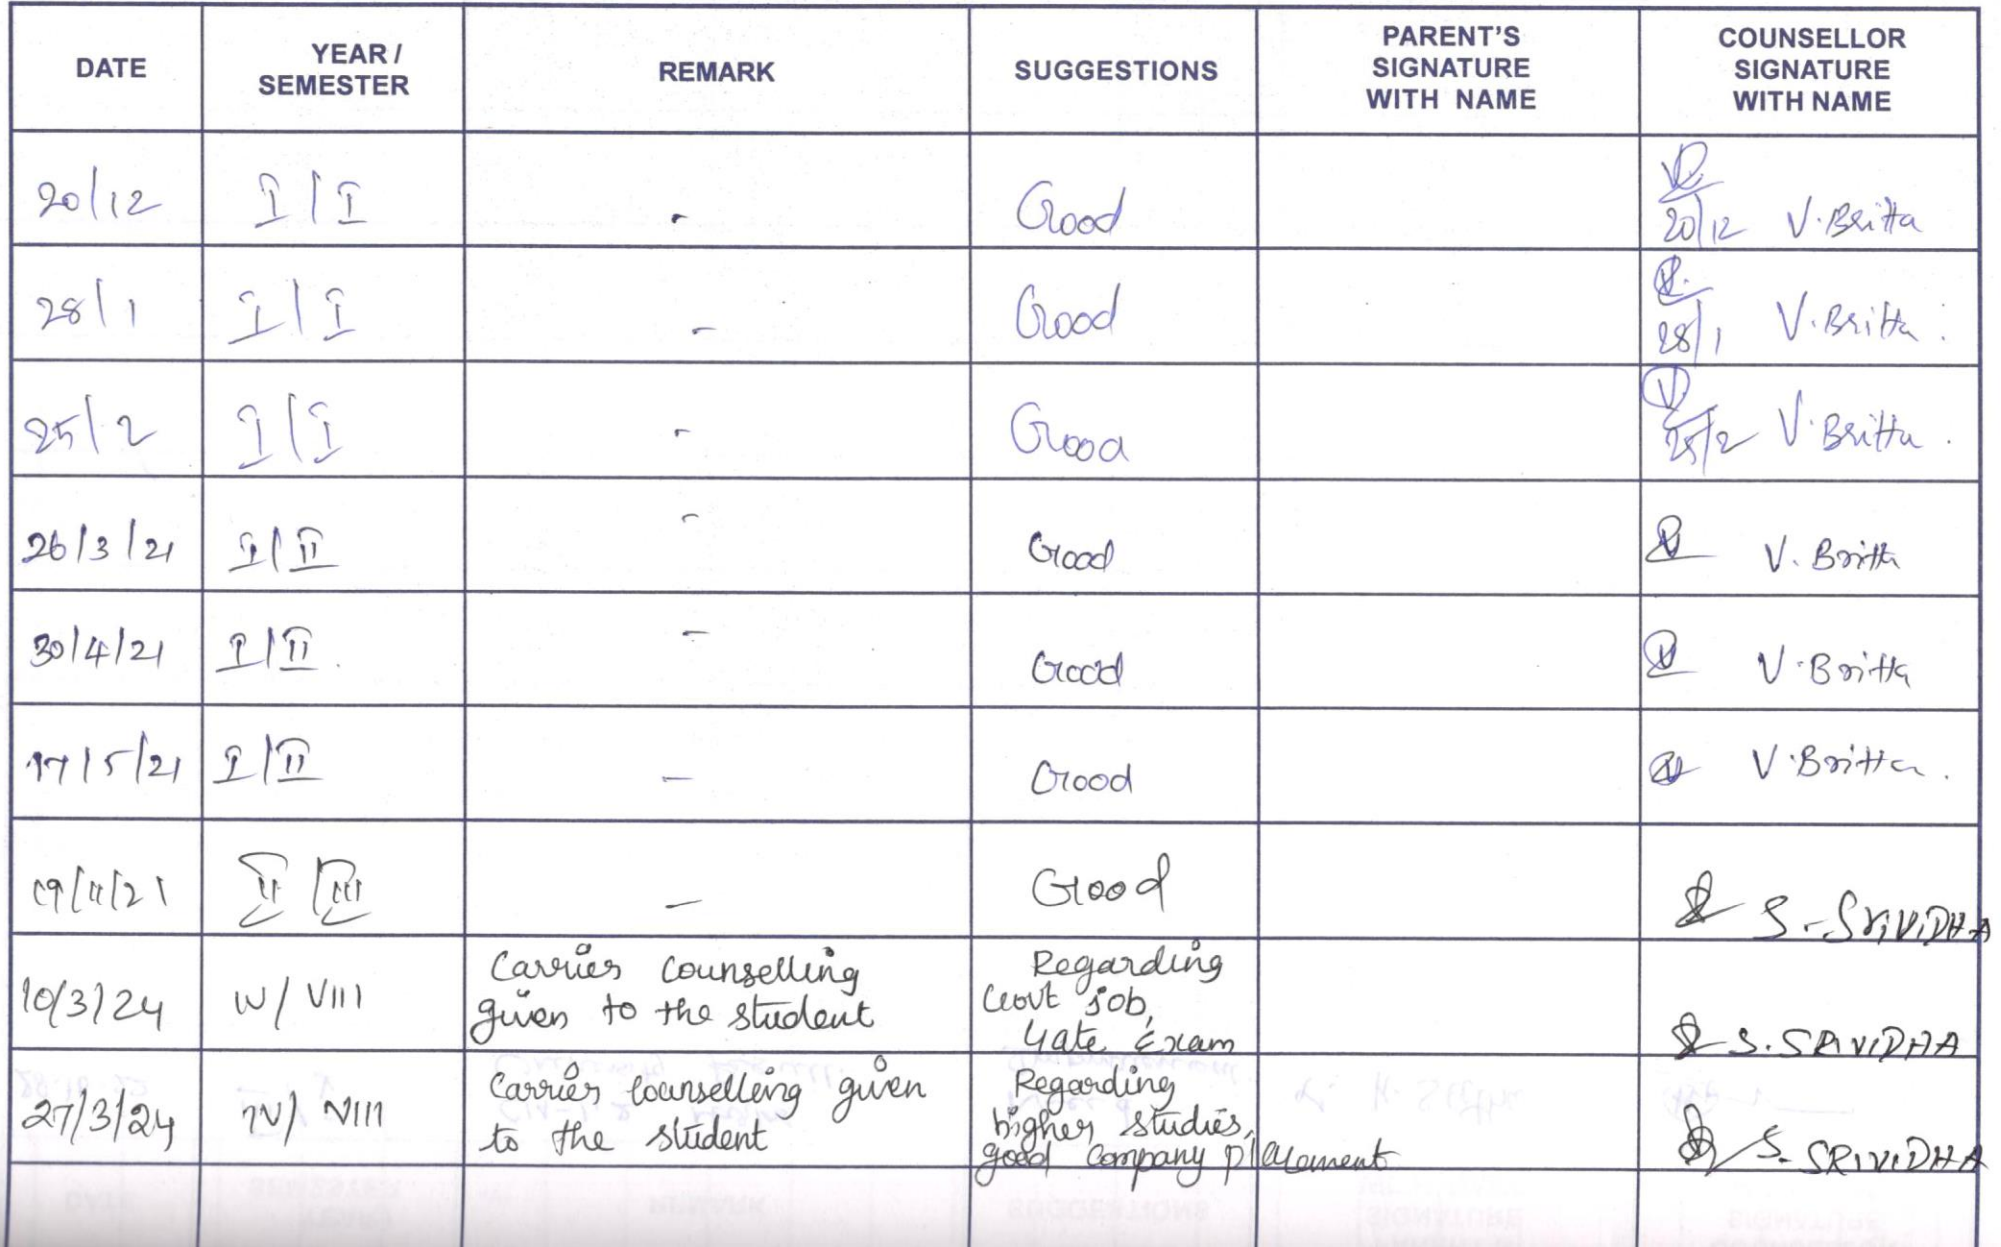 DATE YEAR / SEMESTER REMARK SUGGESTIONS PARENT'S SIGNATURE WITH NAME COUNSELLOR SIGNATURE WITH NAME
20/12 I/I - Good 20/12 V.Britta
28/1 I/I - Good 28/1 V.Britta
25/2 I/I - Good 25/2 V.Britta
26/3/21 I/II - Good V.Britta
30/4/21 I/II - Good V.Britta
17/5/21 I/II - Good V.Britta
19/11/21 II/III - Good S.SRIVIDHA
10/3/24 IV/VIII Carrier Counselling given to the student Regarding Govt job, Gate Exam S.SRIVIDHA
27/3/24 IV/VIII Carrier Counselling given to the student Regarding higher studies, good Company placement S.SRIVIDHA